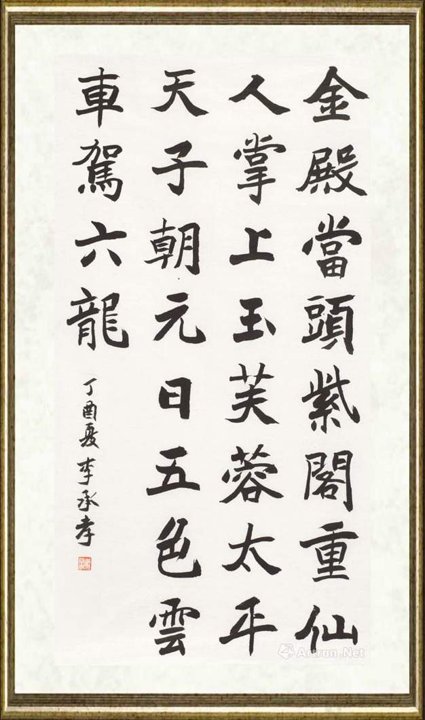 金殿當頭紫閣重仙
人掌上玉芙蓉太平
天子朝元日五色雲
車駕六龍
丁酉夏李承孝
Artron.Net